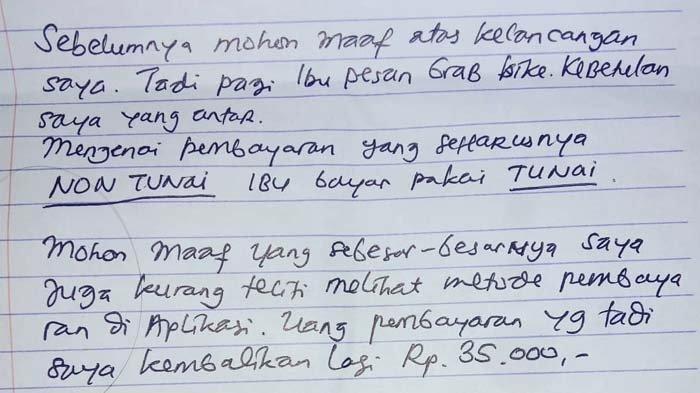 Sebelumnya mohon maaf atas kelancangan
saya. Tadi pagi Ibu pesan Grab bike. Kebetulan
saya yang antar.
Mengenai pembayaran yang seharusnya
NON TUNAI IBU bayar pakai TUNAI.
Mohon maaf yang sebesar-besarnya saya
juga kurang teliti melihat metode pembaya
ran di Aplikasi. Uang pembayaran yg tadi
saya kembalikan lagi Rp. 35.000,-